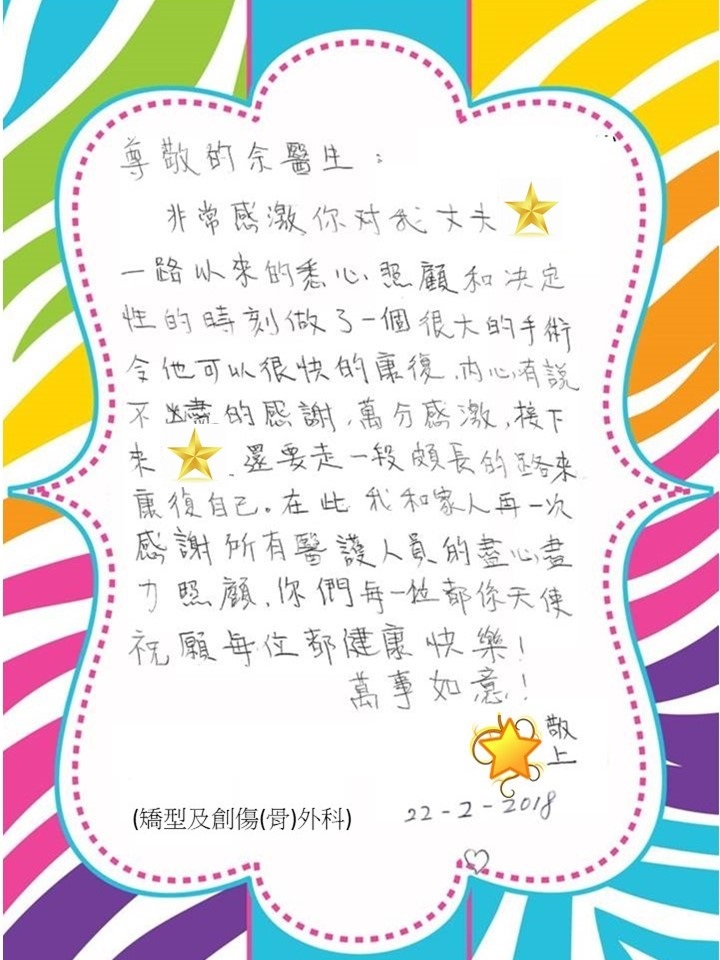 尊敬的余醫生：
非常感激你对我丈夫
一路以來的悉心照顧和决定
性的時刻做了一個很大的手術
令他可以很快的康復，内心有說
不出盡的感謝，萬分感激，接下
來 ，還要走一段頗長的路來
康復自己。在此我和家人再一次
感謝所有醫護人員的盡心盡
力照顧，你們每一位都係天使
祝願每位都健康快樂！
萬事如意！
敬上
(矯型及創傷(骨)外科)
22-2-2018